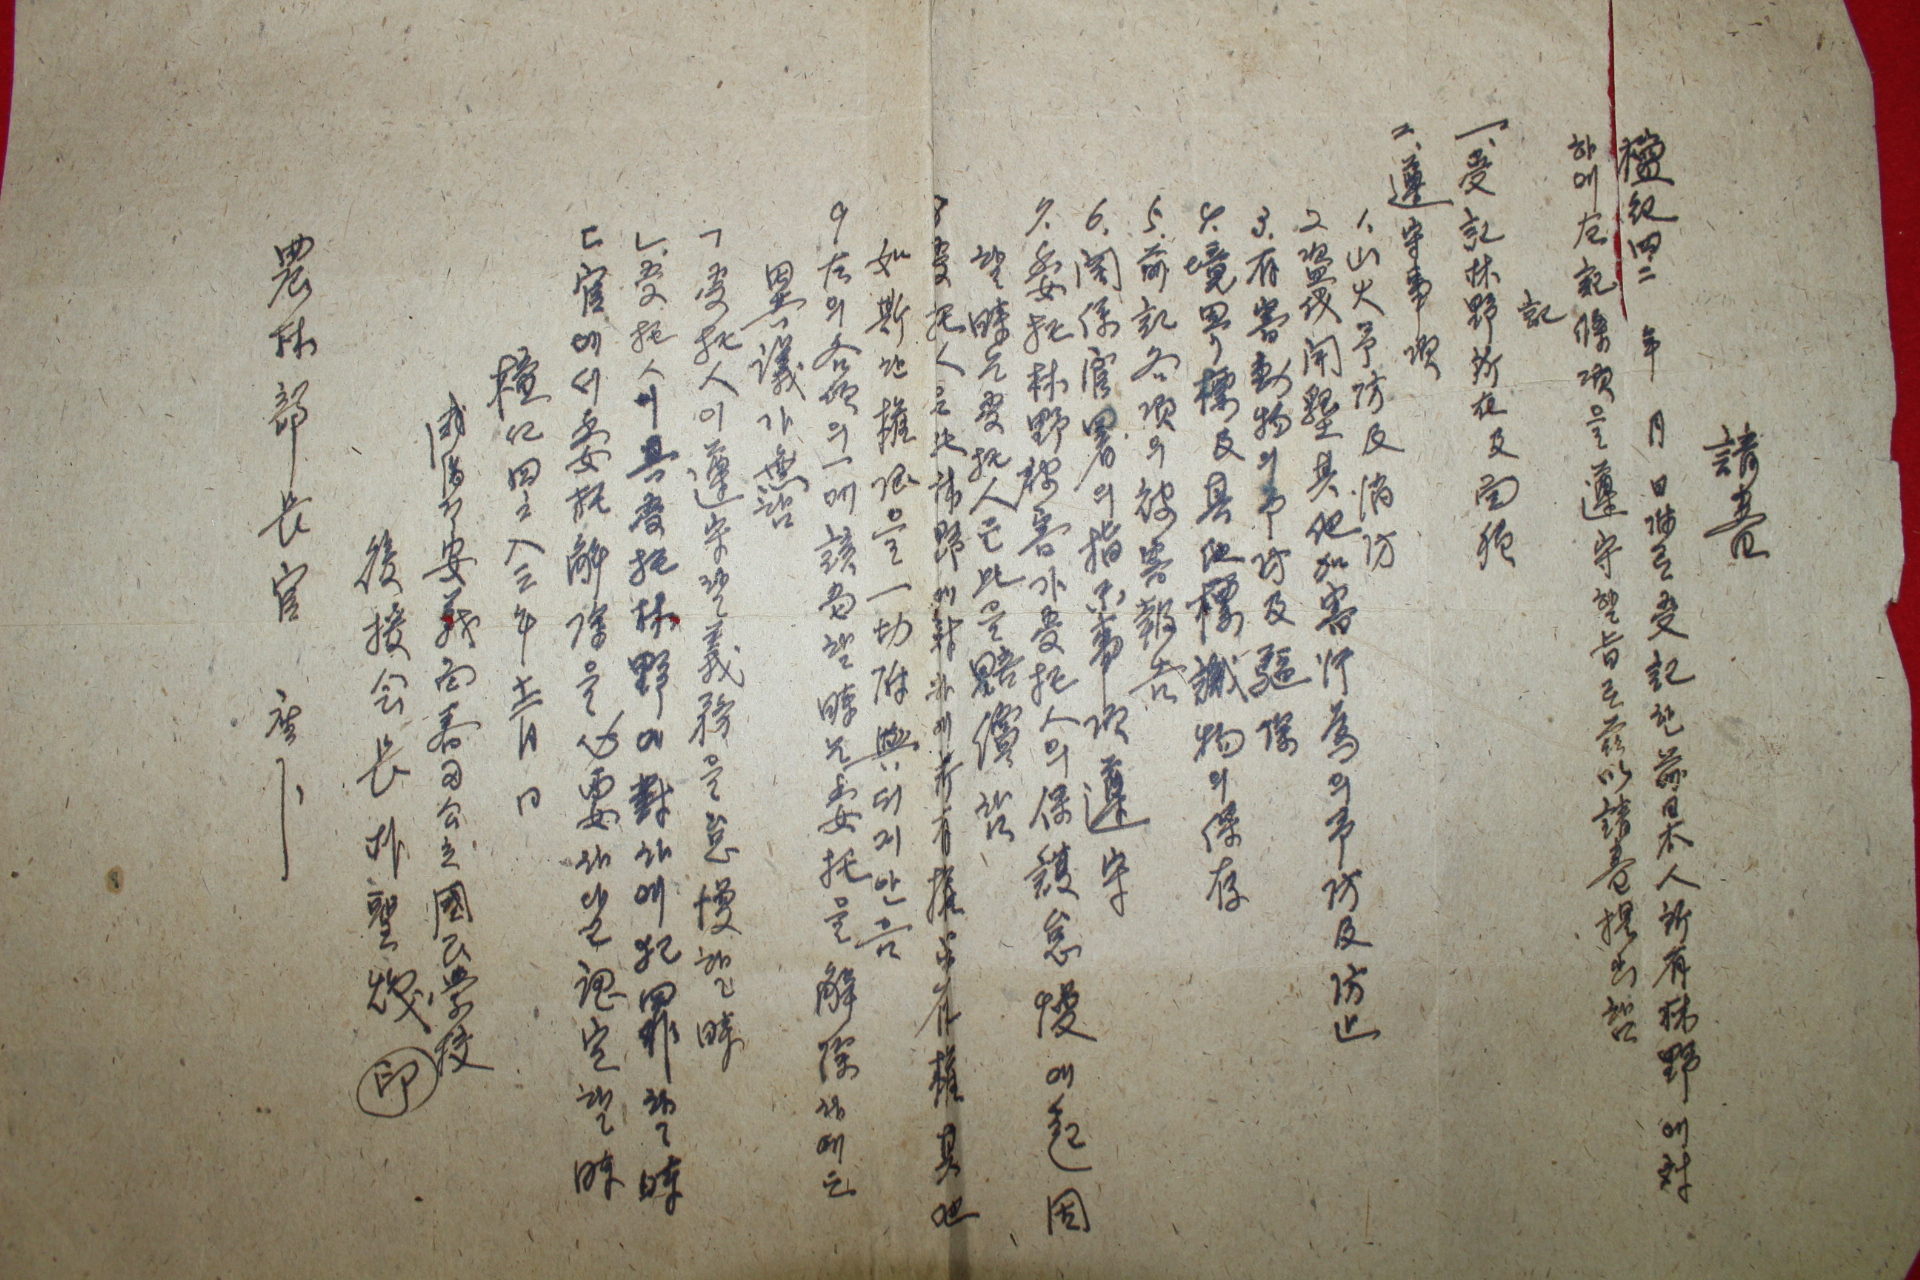 請書
檀紀四二 年 月 日 受記한 前日本人所有林野에 対
하에 左記條項을 遵守할 旨로 茲以請書提出함
記
一、受記林野所在及面積
二、遵守事項
1.山火予防及消防
2 盜伐開墾其他加害行為의 予防及防止
3.有害動物의 予防及驅除
4.境界標及其他標識物의 保存
5.前記各項의 被害報告
6.関係官署의 指示事項遵守
7.委托林野 被害가 受托人의 保護怠慢에 起因
할 時는 受托人은 此을 賠償함
8 受托人은 此林野에 対하에 所有權 其他
如斯한 權限을 一切附與되지 안음
9 左의 各項의 一에 該当할 時는 委托을 解除하에도
異議가 無함
ㄱ 受托人이 遵守할 義務을 怠慢할 時
ㄴ.受托人이 其受托林野에 対하에 犯罪할 時
ㄷ 官에서 委托解除을 必要하다고 認定할 時
檀紀四二八三年 十二月 日
安義面 公立國民學校
後援会長 朴聖 印
農林部長官 座下